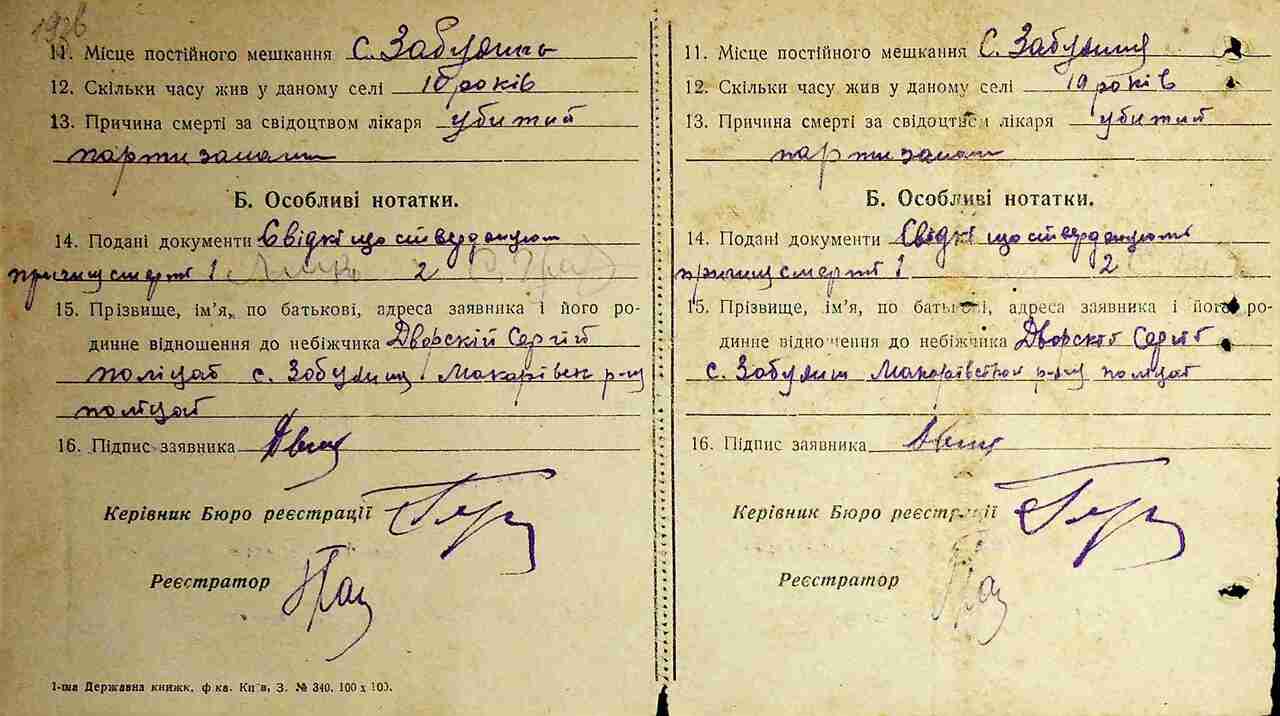 1926
11. Місце постійного мешкання с. Забуянь
12. Скільки часу жив у даному селі 10 років
13. Причина смерті за свідоцтвом лікаря убитий
партизанами
Б. Особливі нотатки.
14. Подані документи Свідкі що стверджують
причину смерті 1 2
15. Прізвище, ім’я, по батькові, адреса заявника і його ро-
динне відношення до небіжчика Дворскій Сергій
поліцай с. Забуянь Макарівск р-ну
поліцай
16. Підпис заявника
Керівник Бюро реєстрації
Реєстратор
1-ша Державна книжк. ф-ка. Київ, З. № 340. 100 х 100.
11. Місце постійного мешкання с. Забуяння
12. Скільки часу жив у даному селі 19 років
13. Причина смерті за свідоцтвом лікаря убитий
партизанами
Б. Особливі нотатки.
14. Подані документи Свідкі що стверджують
причину смерті 1 2
15. Прізвище, ім’я, по батькові, адреса заявника і його ро-
динне відношення до небіжчика Дворскій Сергій
с. Забуянь Макарівской р-ну поліцай
16. Підпис заявника
Керівник Бюро реєстрації
Реєстратор